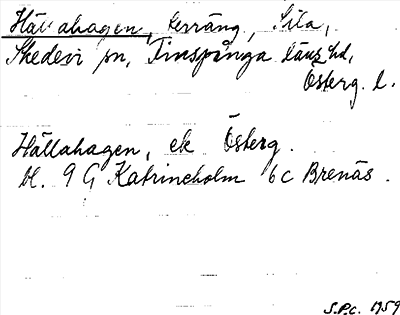 Hällahagen, terräng, Sila,
Skedevi sn, Finspånga läns hd,
Österg. l.
Hällahagen, ek Österg.
bl. 9 G Katrineholm 6 c Brenäs.
S.P.C. 1959